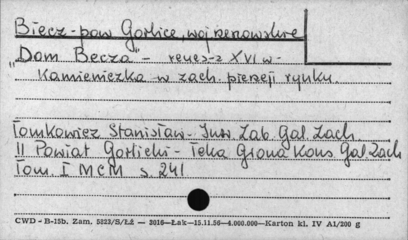 Biecz - pow Gorlice, woj rzeszowskie
"Dom Becza" - renes-z XVI w -
Kamieniczka w zach. pierzeji rynku.
Tomkowicz Stanisław - Inw. Zab. Gal. Zach
II Powiat Gorlicki - Teka Grona Kons Gal Zach
Tom. I MCM s 241
CWD - B-15b. Zam. 5823/S/ŁŻ — 3016—Łak—15.11.56—4.000.000—Karton kl. IV A1/200 g